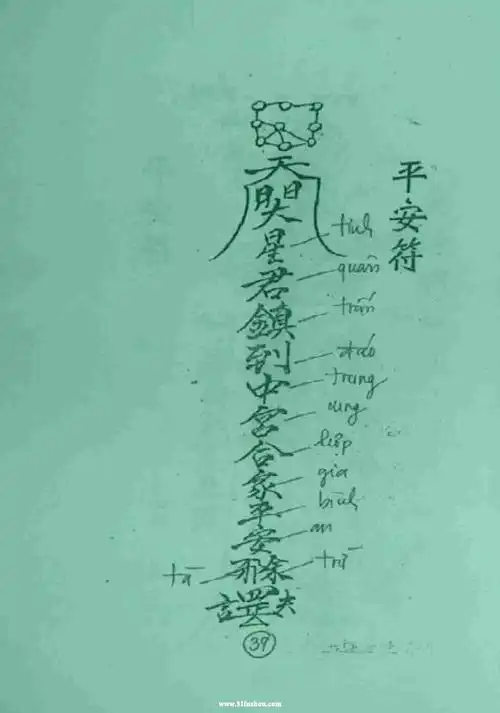 平安符
天
星君鎮到中宮合家平安
tinh
quân
trấn
đáo
trung
cung
hiệp
gia
bình
an
trừ
tà
39
www.51fuzhou.com